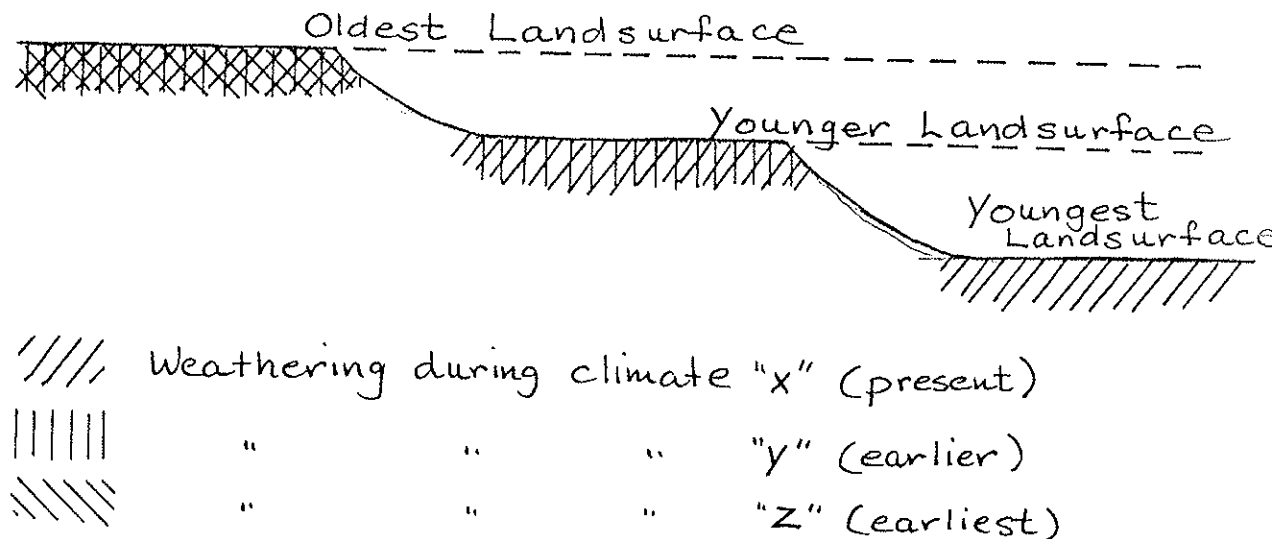 Oldest Landsurface
Younger Landsurface
Youngest
Landsurface
Weathering during climate "x" (present)
" " " "y" (earlier)
" " " "z" (earliest)